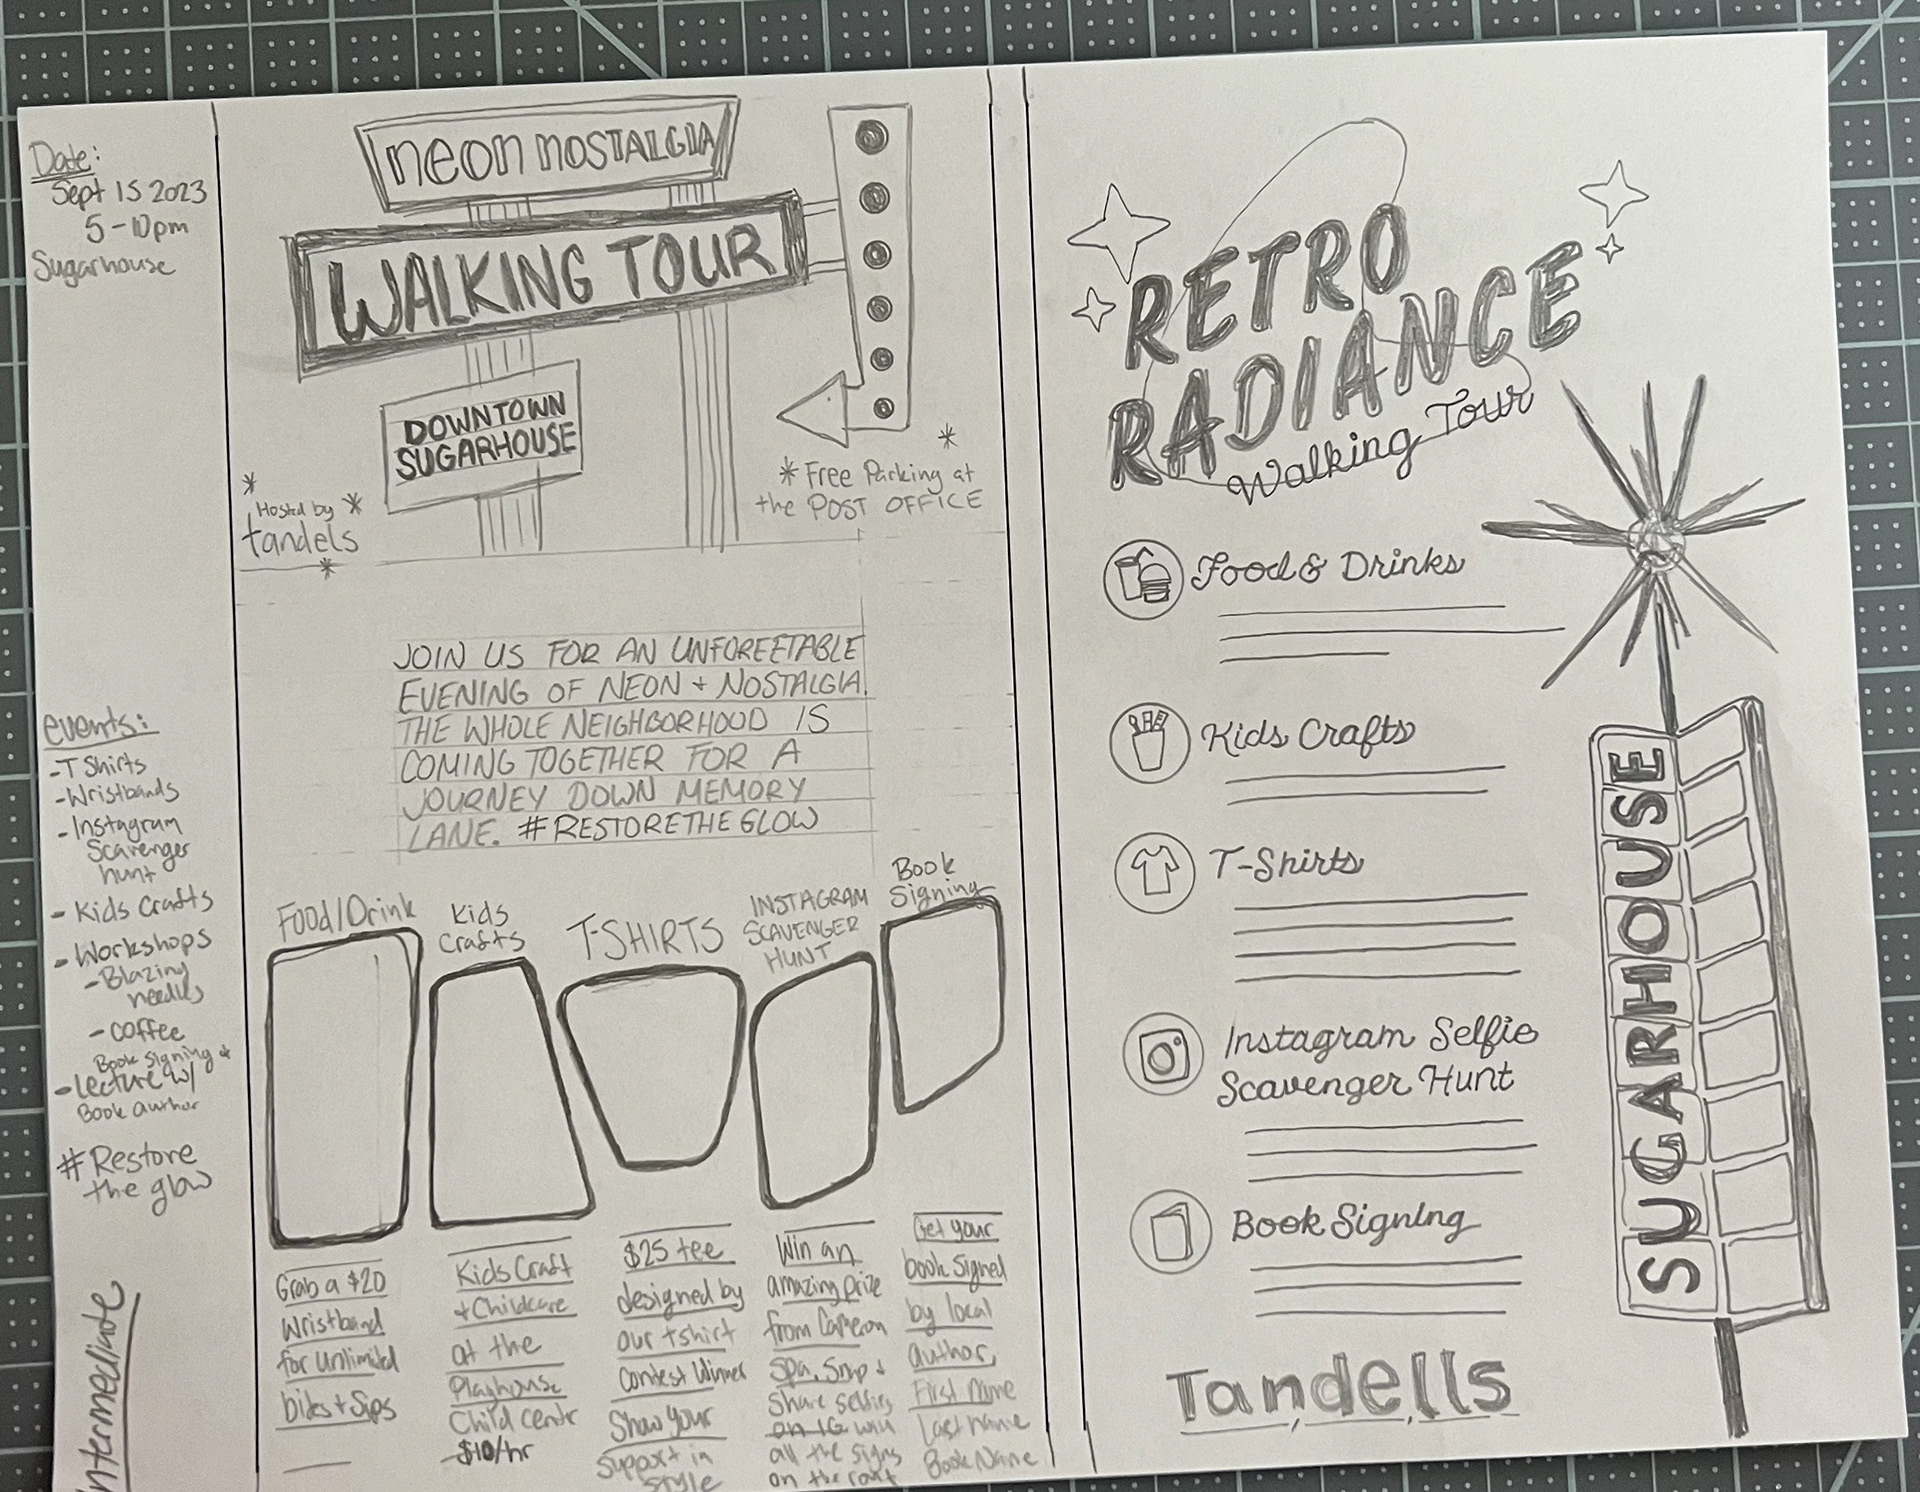 Date:
Sept 15 2023
5-10pm
Sugarhouse
events:
-T Shirts
-Wristbands
-Instagram
Scavenger
hunt
- Kids Crafts
- Workshops
- Blazing
needles
- coffee
Book Signing &
- Lecture w/
Book author
# Restore
the glow
intermediate
neon NOSTALGIA
WALKING TOUR
DOWNTOWN
SUGARHOUSE
Hosted by
tandels
* Free Parking at
the POST OFFICE
JOIN US FOR AN UNFOREETABLE
EVENING OF NEON + NOSTALGIA.
THE WHOLE NEIGHBORHOOD IS
COMING TOGETHER FOR A
JOURNEY DOWN MEMORY
LANE. #RESTORETHEGLOW
Food/Drink
Kids
Crafts
T-SHIRTS
INSTAGRAM
SCAVENGER
HUNT
Book
Signing
Grab a $20
Wristband
for unlimited
bites + Sips
Kids Craft
+ Childcare
at the
Playhouse
Child centr
$10/hr
$25 tee
designed by
our tshirt
Contest Winner
Show your
support in
style
Win an
amazing prize
from Cameron
Spa. Snap +
Share selfies
on IG with
all the signs
on the rout
Get your
book signed
by local
author,
First Name
Last name
Book Name
RETRO
RADIANCE
Walking Tour
Food & Drinks
Kids Crafts
T-Shirts
Instagram Selfie
Scavenger Hunt
Book Signing
Tandells
SUGARHOUSE